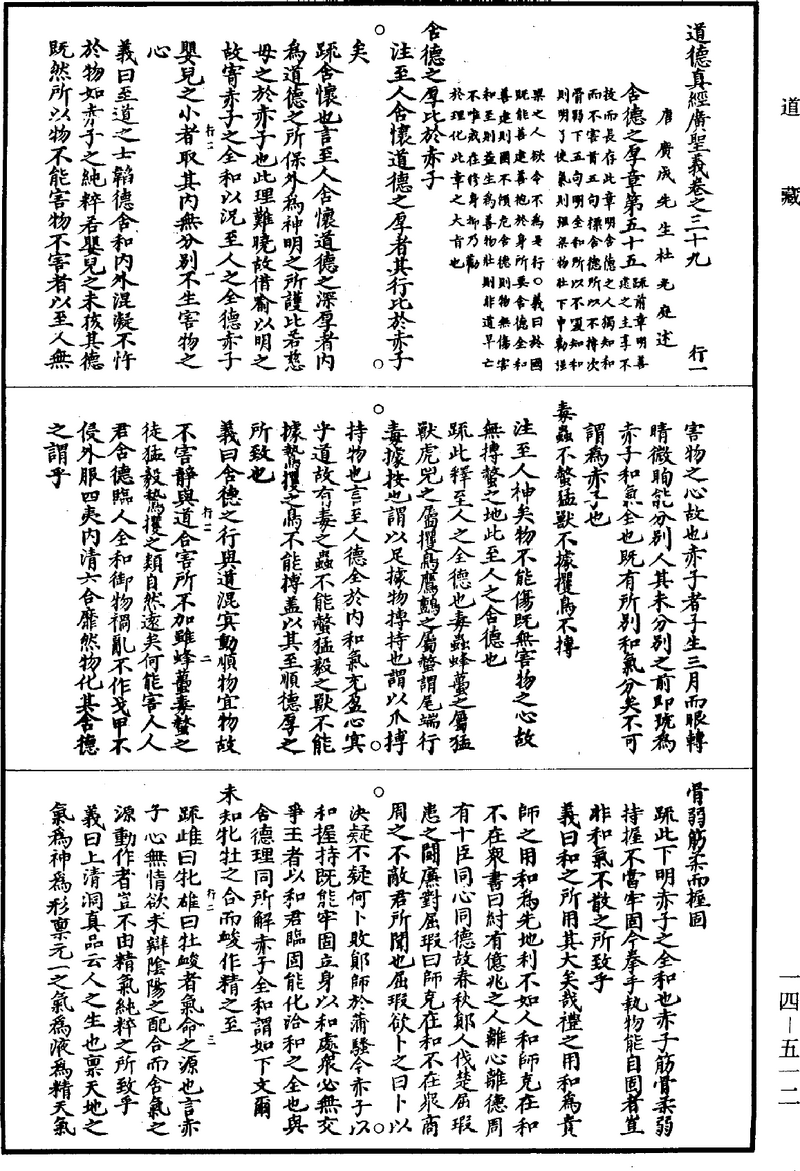 道藏
一四-五一二
道德真經廣聖義卷之三十九　行一
唐廣成先生杜光庭述
含德之厚章第五十五
疏前章明善建之主享不
拔而長存此章明含德之人獨知和
而不害首五句標含德所以不摶次
骨弱下五句明全和所以不嗄知和
則明了使氣則強梁物壯下申勸誡
梁之人欲令不為是行○義曰於國
既能善建善抱於身所要含德全和
善建則國不傾危含德則物無傷害
和至則益生為善物壯則非道早亡
不唯戒在修身抑乃勸
於理化此章之大旨也
含德之厚比於赤子
注至人含懷道德之厚者其行比於赤子
矣
疏含懷也言至人含懷道德之深厚者內
為道德之所保外為神明之所護比若慈
母之於赤子也此理難曉故借喻以明之
故寄赤子之全和以況至人之全德赤子
嬰兒之小者取其內無分別不生害物之
心
義曰至道之士韜德含和內外混凝不忤
於物如赤子之純粹若嬰兒之未孩其德
既然所以物不能害物不害者以至人無
害物之心故也赤子者子生三月而眼轉
睛微眴能分別人其未分別之前即號為
赤子和氣全也既有所別和氣分矣不可
謂為赤子也
毒蟲不螫猛獸不據攫鳥不搏
注至人神矣物不能傷既無害物之心故
無搏螫之地此至人之含德也
疏此釋至人之全德也毒蟲蜂蠆之屬猛
獸虎兕之屬攫鳥鷹鸇之屬螫謂尾端行
毒據按也謂以足據物搏持也謂以爪搏
持物也言至人德全於內和氣充盈心冥
乎道故有毒之蟲不能螫猛毅之獸不能
據鷙攫之鳥不能搏蓋以其至順德厚之
所致也
義曰含德之行與道混冥動順物宜物故
不害靜與道合害所不加雖蜂蠆毒螫之
徒猛毅鷙攫之類自然遠矣何能害人人
君含德臨人全和御物禍亂不作戈甲不
侵外服四夷內清六合靡然物化其含德
之謂乎
骨弱筋柔而握固
疏此下明赤子之全和也赤子筋骨柔弱
持握不當牢固今拳手執物能自固者豈
非和氣不散之所致乎
義曰和之所用其大矣哉禮之用和為貴
師之用和為先地利不如人和師克在和
不在眾書曰紂有億兆之人離心離德周
有十臣同心同德故春秋鄖人伐楚屈瑕
患之鬪廉對屈瑕曰師克在和不在眾商
周之不敵君所聞也屈瑕欲卜之曰卜以
決疑不疑何卜敗鄖師於蒲騷今赤子以
和握持既能牢固立身以和處眾必無交
爭王者以和君臨固能化洽和之全也與
含德理同所解赤子全和謂如下文爾
未知牝牡之合而峻作精之至
疏雌曰牝雄曰牡峻者氣命之源也言赤
子心無情欲未辯陰陽之配合而含氣之
源動作者豈不由精氣純粹之所致乎
義曰上清洞真品云人之生也稟天地之
氣為神為形稟元一之氣為液為精天氣